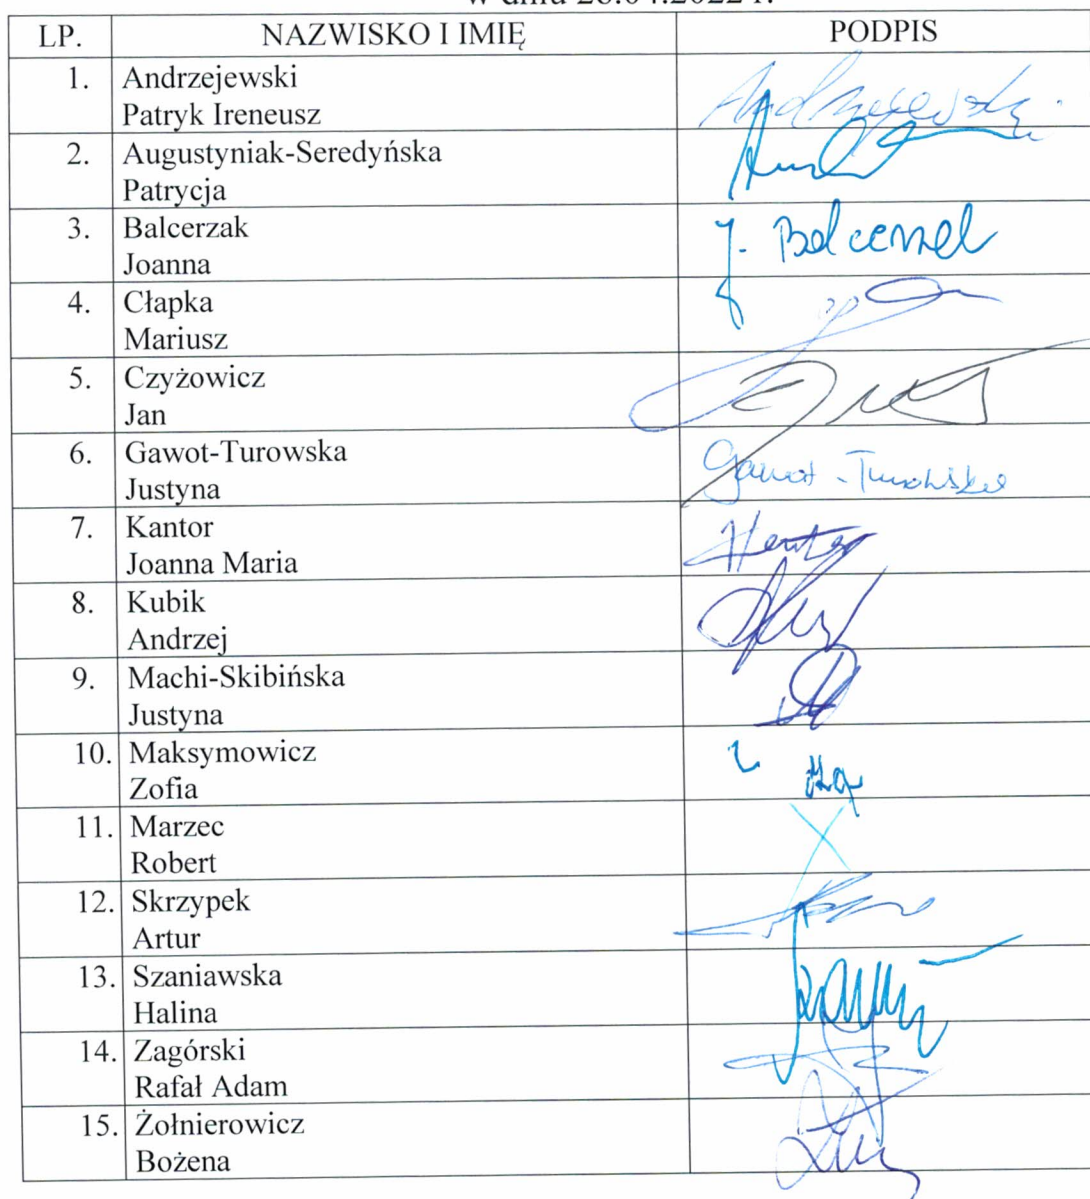 w dniu 28.04.2022 r.
LP. NAZWISKO I IMIĘ PODPIS
1. Andrzejewski
Patryk Ireneusz
Andrzejewski
2. Augustyniak-Seredyńska
Patrycja
3. Balcerzak
Joanna
J. Balcerzak
4. Cłapka
Mariusz
5. Czyżowicz
Jan
6. Gawot-Turowska
Justyna
Gawot-Turowska
7. Kantor
Joanna Maria
Kantor
8. Kubik
Andrzej
9. Machi-Skibińska
Justyna
10. Maksymowicz
Zofia
11. Marzec
Robert
12. Skrzypek
Artur
13. Szaniawska
Halina
14. Zagórski
Rafał Adam
15. Żołnierowicz
Bożena